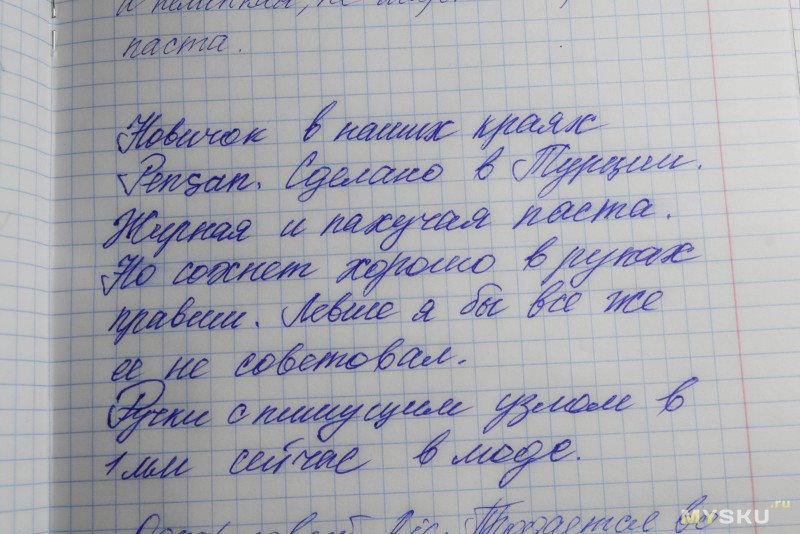 паста.
Новичок в наших краях
Pensan. Сделано в Турции.
Жирная и пахучая паста.
Но сохнет хорошо в руках
правши. Левше я бы все же
ее не советовал.
Ручки с пишущим узлом в
1 мм сейчас в моде.
Продается во
MYSKU.ru